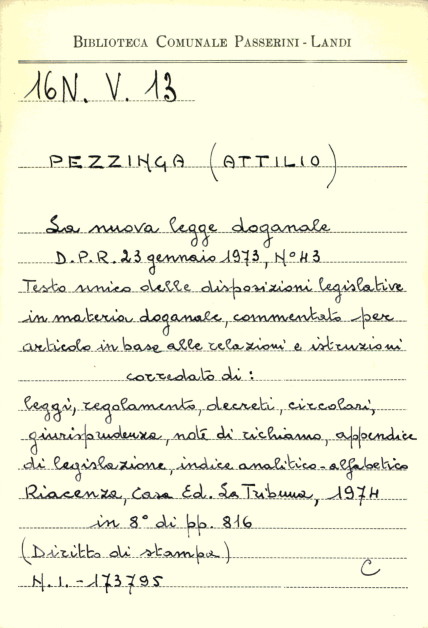 BIBLIOTECA COMUNALE PASSERINI - LANDI
16N. V. 13
PEZZINGA (ATTILIO)
La nuova legge doganale
D.P.R. 23 gennaio 1973, N° 43
Testo unico delle disposizioni legislative
in materia doganale, commentato per
articolo in base alle relazioni e istruzioni
corredato di :
leggi, regolamento, decreti, circolari,
giurisprudenza, note di richiamo, appendice
di legislazione, indice analitico-alfabetico
Piacenza, Casa Ed. La Tribuna, 1974
in 8° di pp. 816
(Diritto di stampa)
N. I. - 173795
C